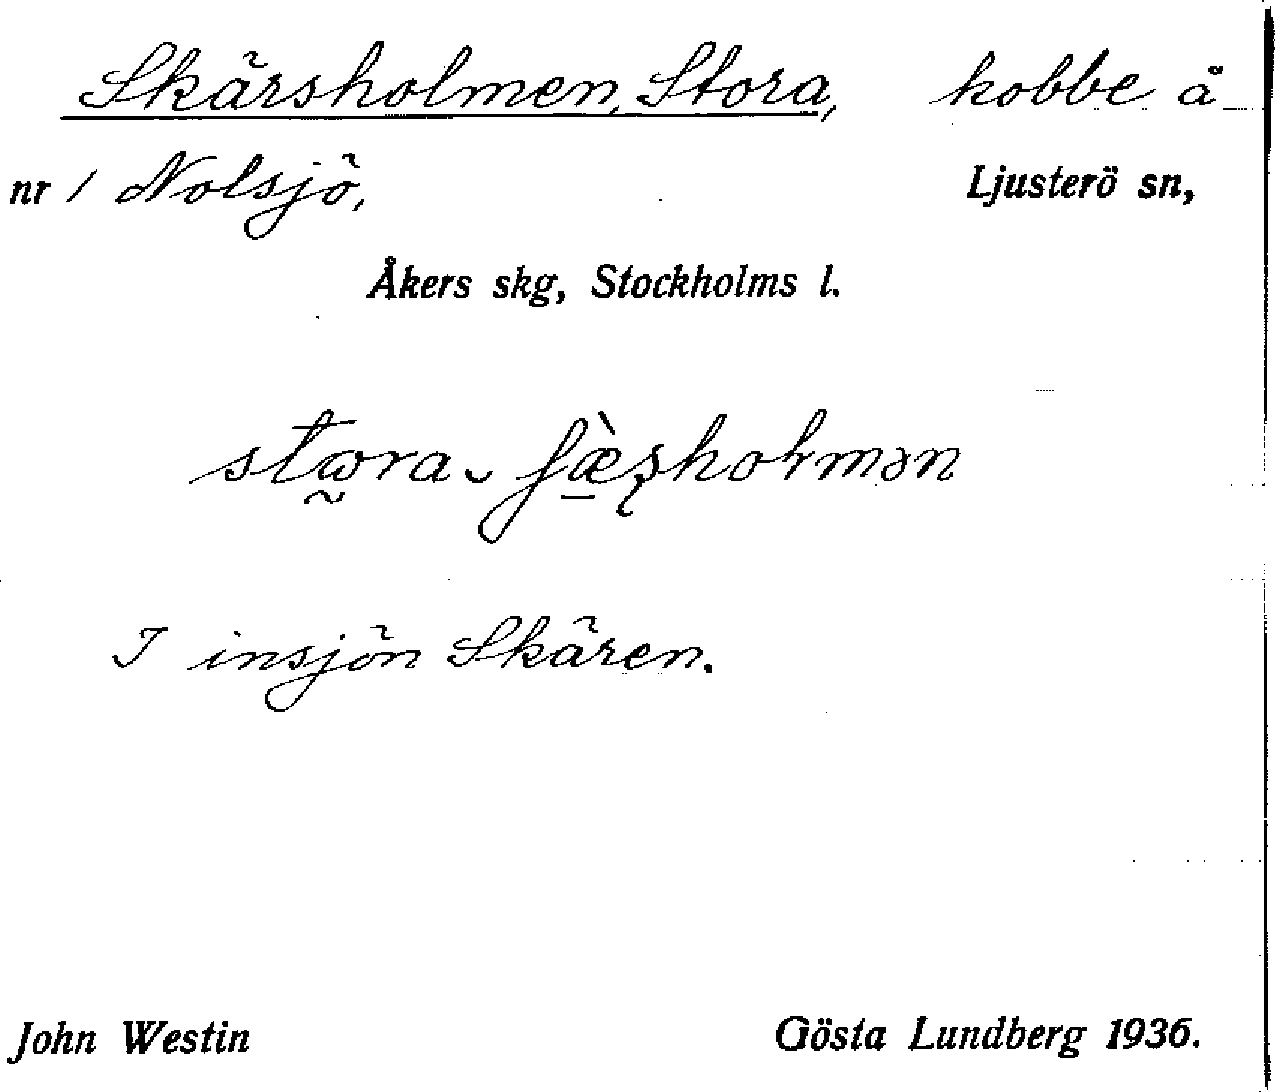 Skärsholmen, Stora, kobbe å
nr 1 Nolsjö, Ljusterö sn,
Åkers skg, Stockholms l.
stωra ʃæ̀ʂholmən
I insjön Skären.
John Westin Gösta Lundberg 1936.